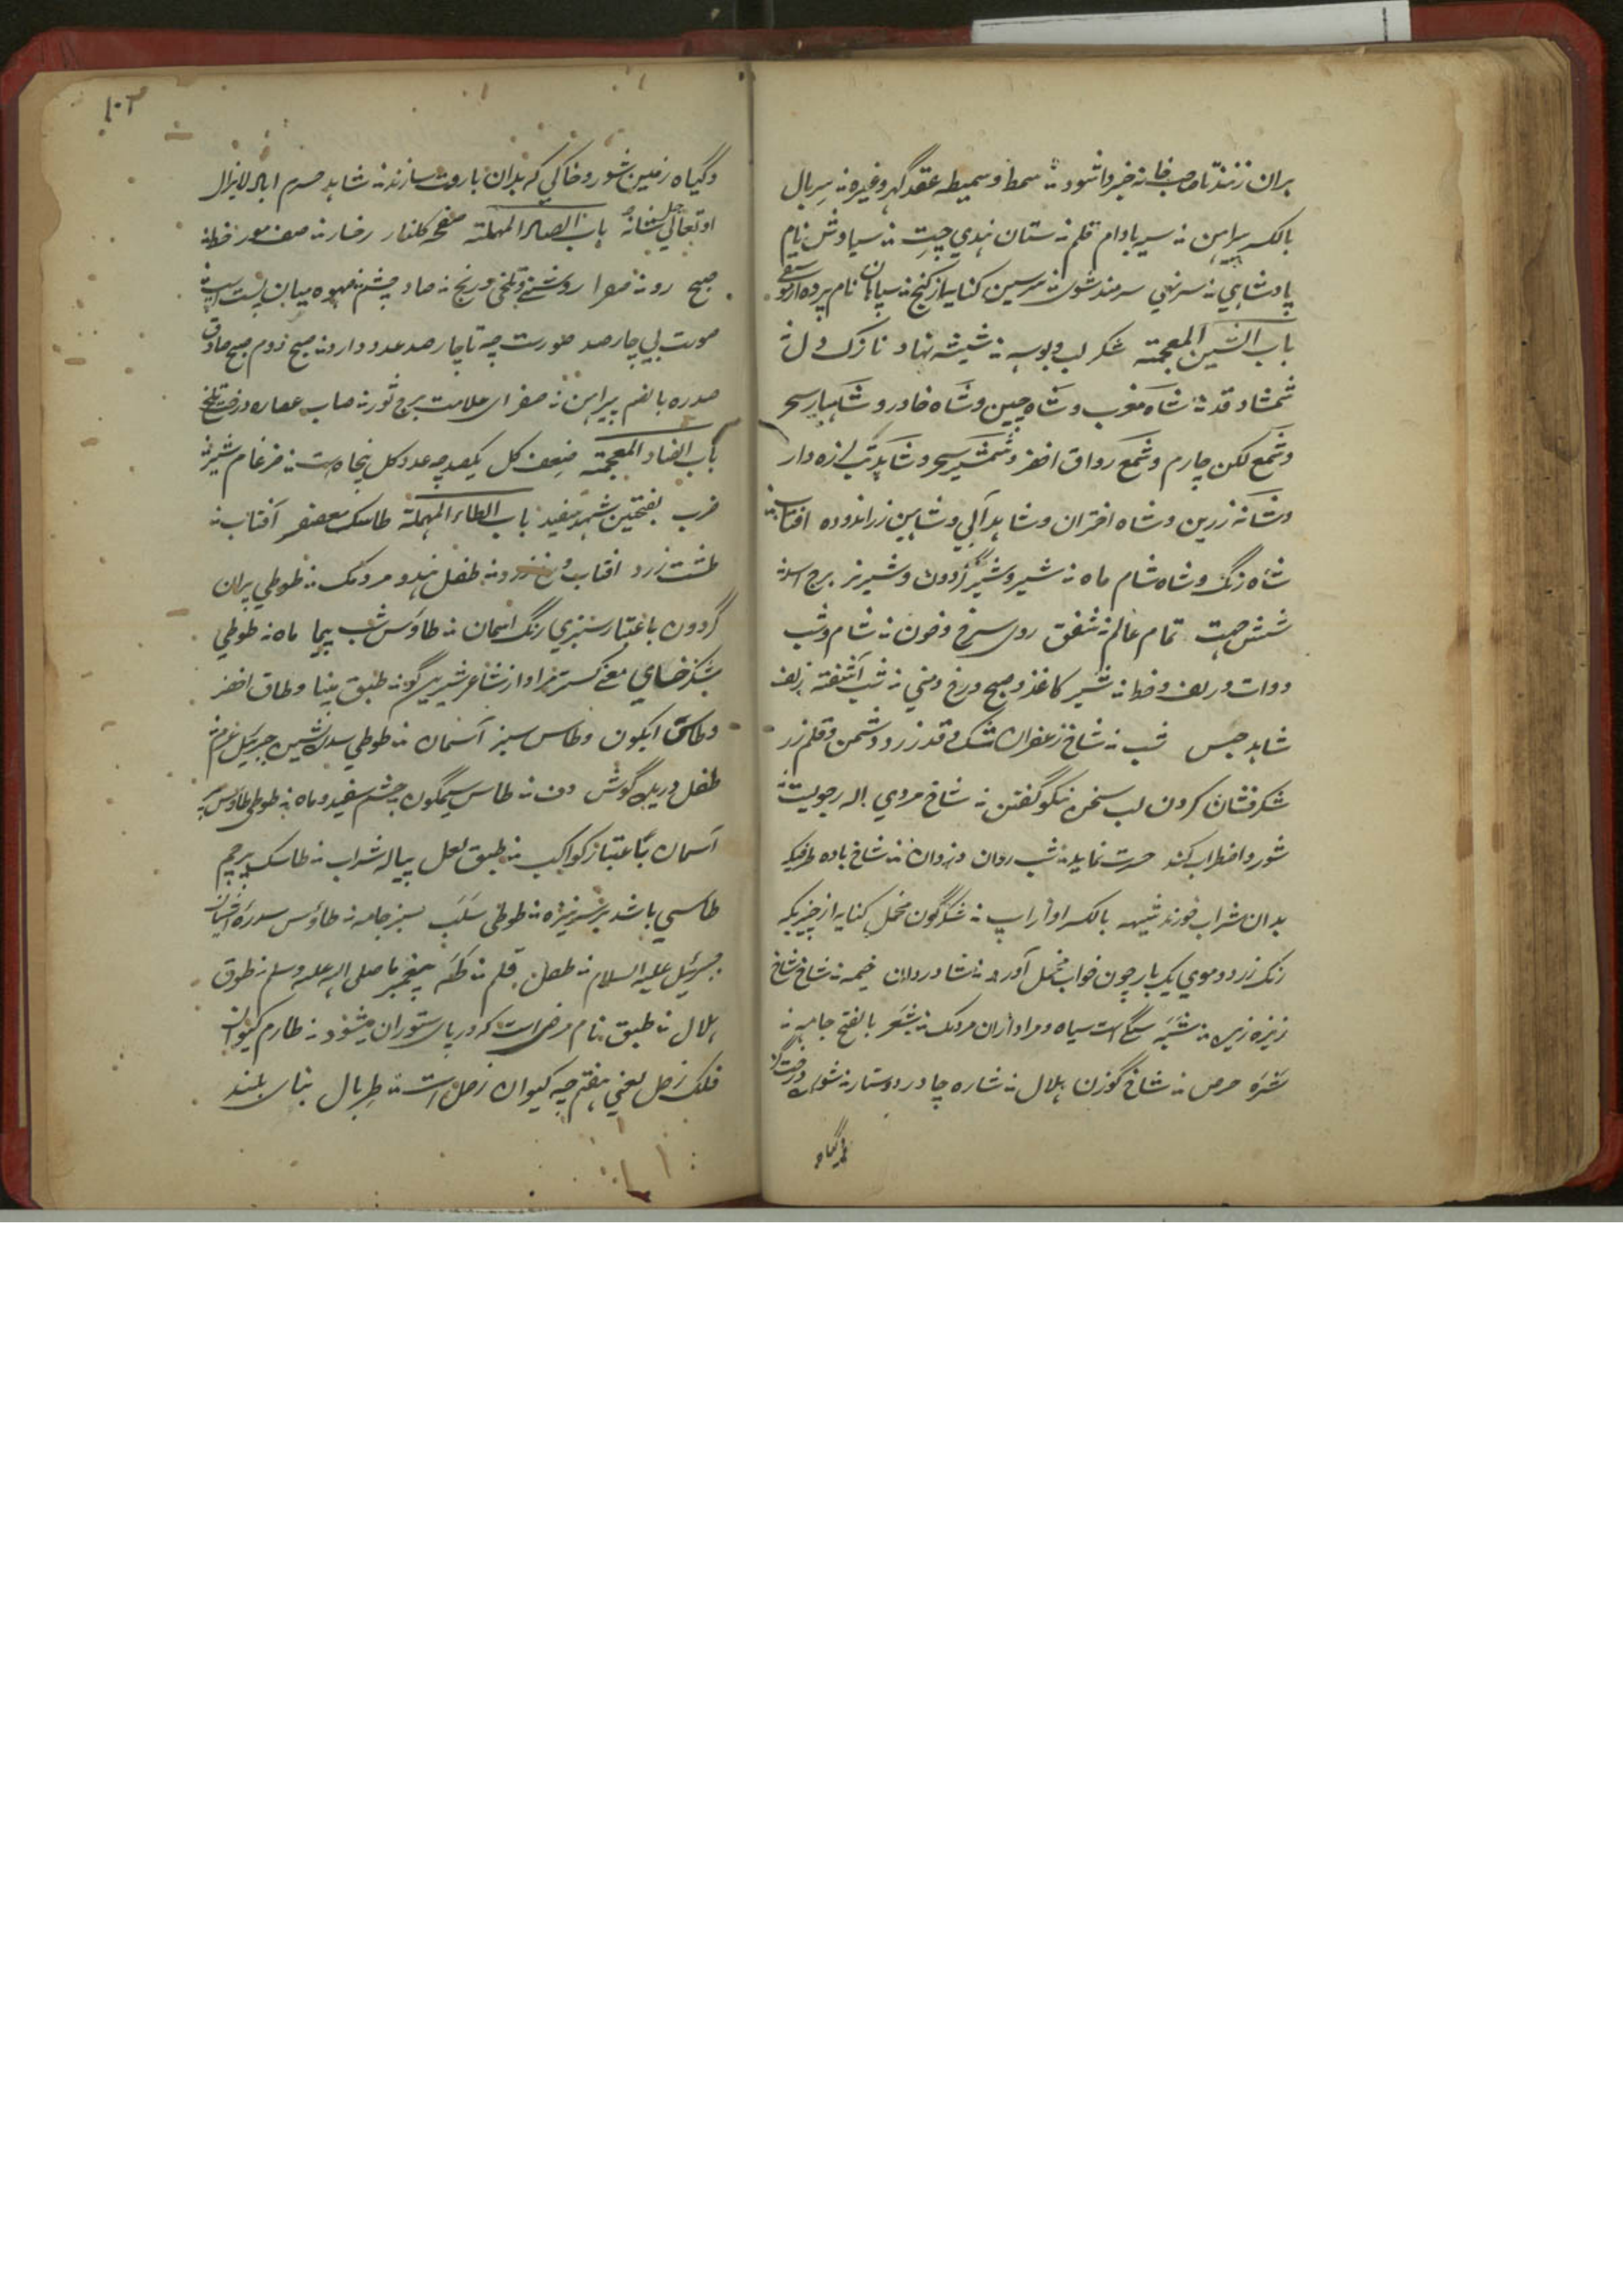 بران زنند تا صاحب خانه خبردار شود ؞ سمط و سمیطه عقد گهر وغیره ؞ سربال
بالکسر پیراهن ؞ سیر بادام قلم ؞ ستان هندی چیت ؞ سیاوش نام
پادشاهی ؞ سرنهی سرمند شوی ؞ کنایه از کنج ؞ سپاهان نام پرده از موسیقی
باب الشین المعجمة شکر لب و بوسه ؞ شیشه نهاد نازک دل ؞
شمشاد قد ؞ شاه مغرب و شاه چین و شاه خاور و شاهباز سحر
و شمع لکن چارم و شمع رواق اخضر و شمشیر سحر و شاهد تب لرزه دار
و شانه زرین و شاه اختران و شاهد آلی و شاهین زراندوده افتاب ؞
شاه زنگ و شاه شام ماه ؞ شیر و شیر گردون و شیر نر برج اسد ؞
شش جهت تمام عالم ؞ شفق روی سرخ و خون ؞ شام و شب
دوات و زلف و خط ؞ شیر کاغذ و صبح و رخ و می ؞ شب آشفته زلف
شاهد حبس شب ؞ شاخ زعفران اشک و قد زرد و دشمن و قلم زر
شکرفشان کردن لب سخن نیکو گفتن ؞ شاخ مردی اله رجولیت ؞
شور و اضطراب کند حیرت نماید ؞ شب روان دزدان ؞ شاخ باده ظرفیکه
بدان شراب خورند شیهه بالکسر اواز اسپ ؞ شکرگون مخمل کنایه از چیزیکه
رنگ زرد و موی یک بار چون خواب مخمل آورد ؞ شادروان خیمه ؞ شاخ شاخ
ریزه ریزه ؞ شبه سنگی است سیاه و مراد ازان مردمک ؞ شعر بالفتح جامه ؞
شره حرص ؞ شاخ گوزن هلال ؞ شاره چادر و دستار ؞ شوره درخت گز
و گیاه
۱۰۲
و گیاه و زمین شور و خاکی که بدان باروت سازند ؞ شاهد حرم اباد لایزال
او تعالی جل شانه باب الصاد المهملة صفحه گلنار رخسار ؞ صف مور خط ؞
صبح رو ؞ صفرا روشنی و تلخی و رنج ؞ صاد چشم ؞ صهوه میان پشت اسپ ؞
صورت بی چارصد صورت چه تا چارصد عدد دارد ؞ صبح دوم صبح صادق
صدره بالضم پیراهن ؞ صفرای علامت برج ثور ؞ صاب عصاره درخت تلخ
باب الضاد المعجمة ضعف کل یکصد چه عدد کل پنجاه است ؞ ضرغام شیر ؞
ضرب بفتحتین شهد سفید باب الطاء المهملة طاسک معصفر آفتاب ؞
طشت زرد افتاب ؞ طفل هندو مردمک ؞ طوطی پران
گردون باعتبار سبزی رنگ اسمان ؞ طاوس شب پیما ماه ؞ طوطی
شکرخای معنی گستر مراد از شاعر شیرین گو ؞ طبق مینا و طاق اخضر
و طاس ابگون و طاس سبز آسمان ؞ طوطی سدره نشین جبرئیل ع م ؞
طفل دریده گوش دف ؞ طاس سیمگون چشم سفید و ماه ؞ طوطی طاوس پر
آسمان باعتبار کواکب ؞ طبق لعل پیاله شراب ؞ طاسک پرچم
طاسی باشد بر سر نیزه ؞ طوطی سلب سبز جامه ؞ طاؤس سدره آشیان
جبرئیل علیه السلام ؞ طفل قلم ؞ طه پیغمبر ما صلی الله علیه وسلم ؞ طوق
هلال ؞ طبق نام مرضی است که در پای ستوران میشود ؞ طارم کیوان
فلک زحل یعنی هفتم چه کیوان زحل است ؞ طربال بنای بلند